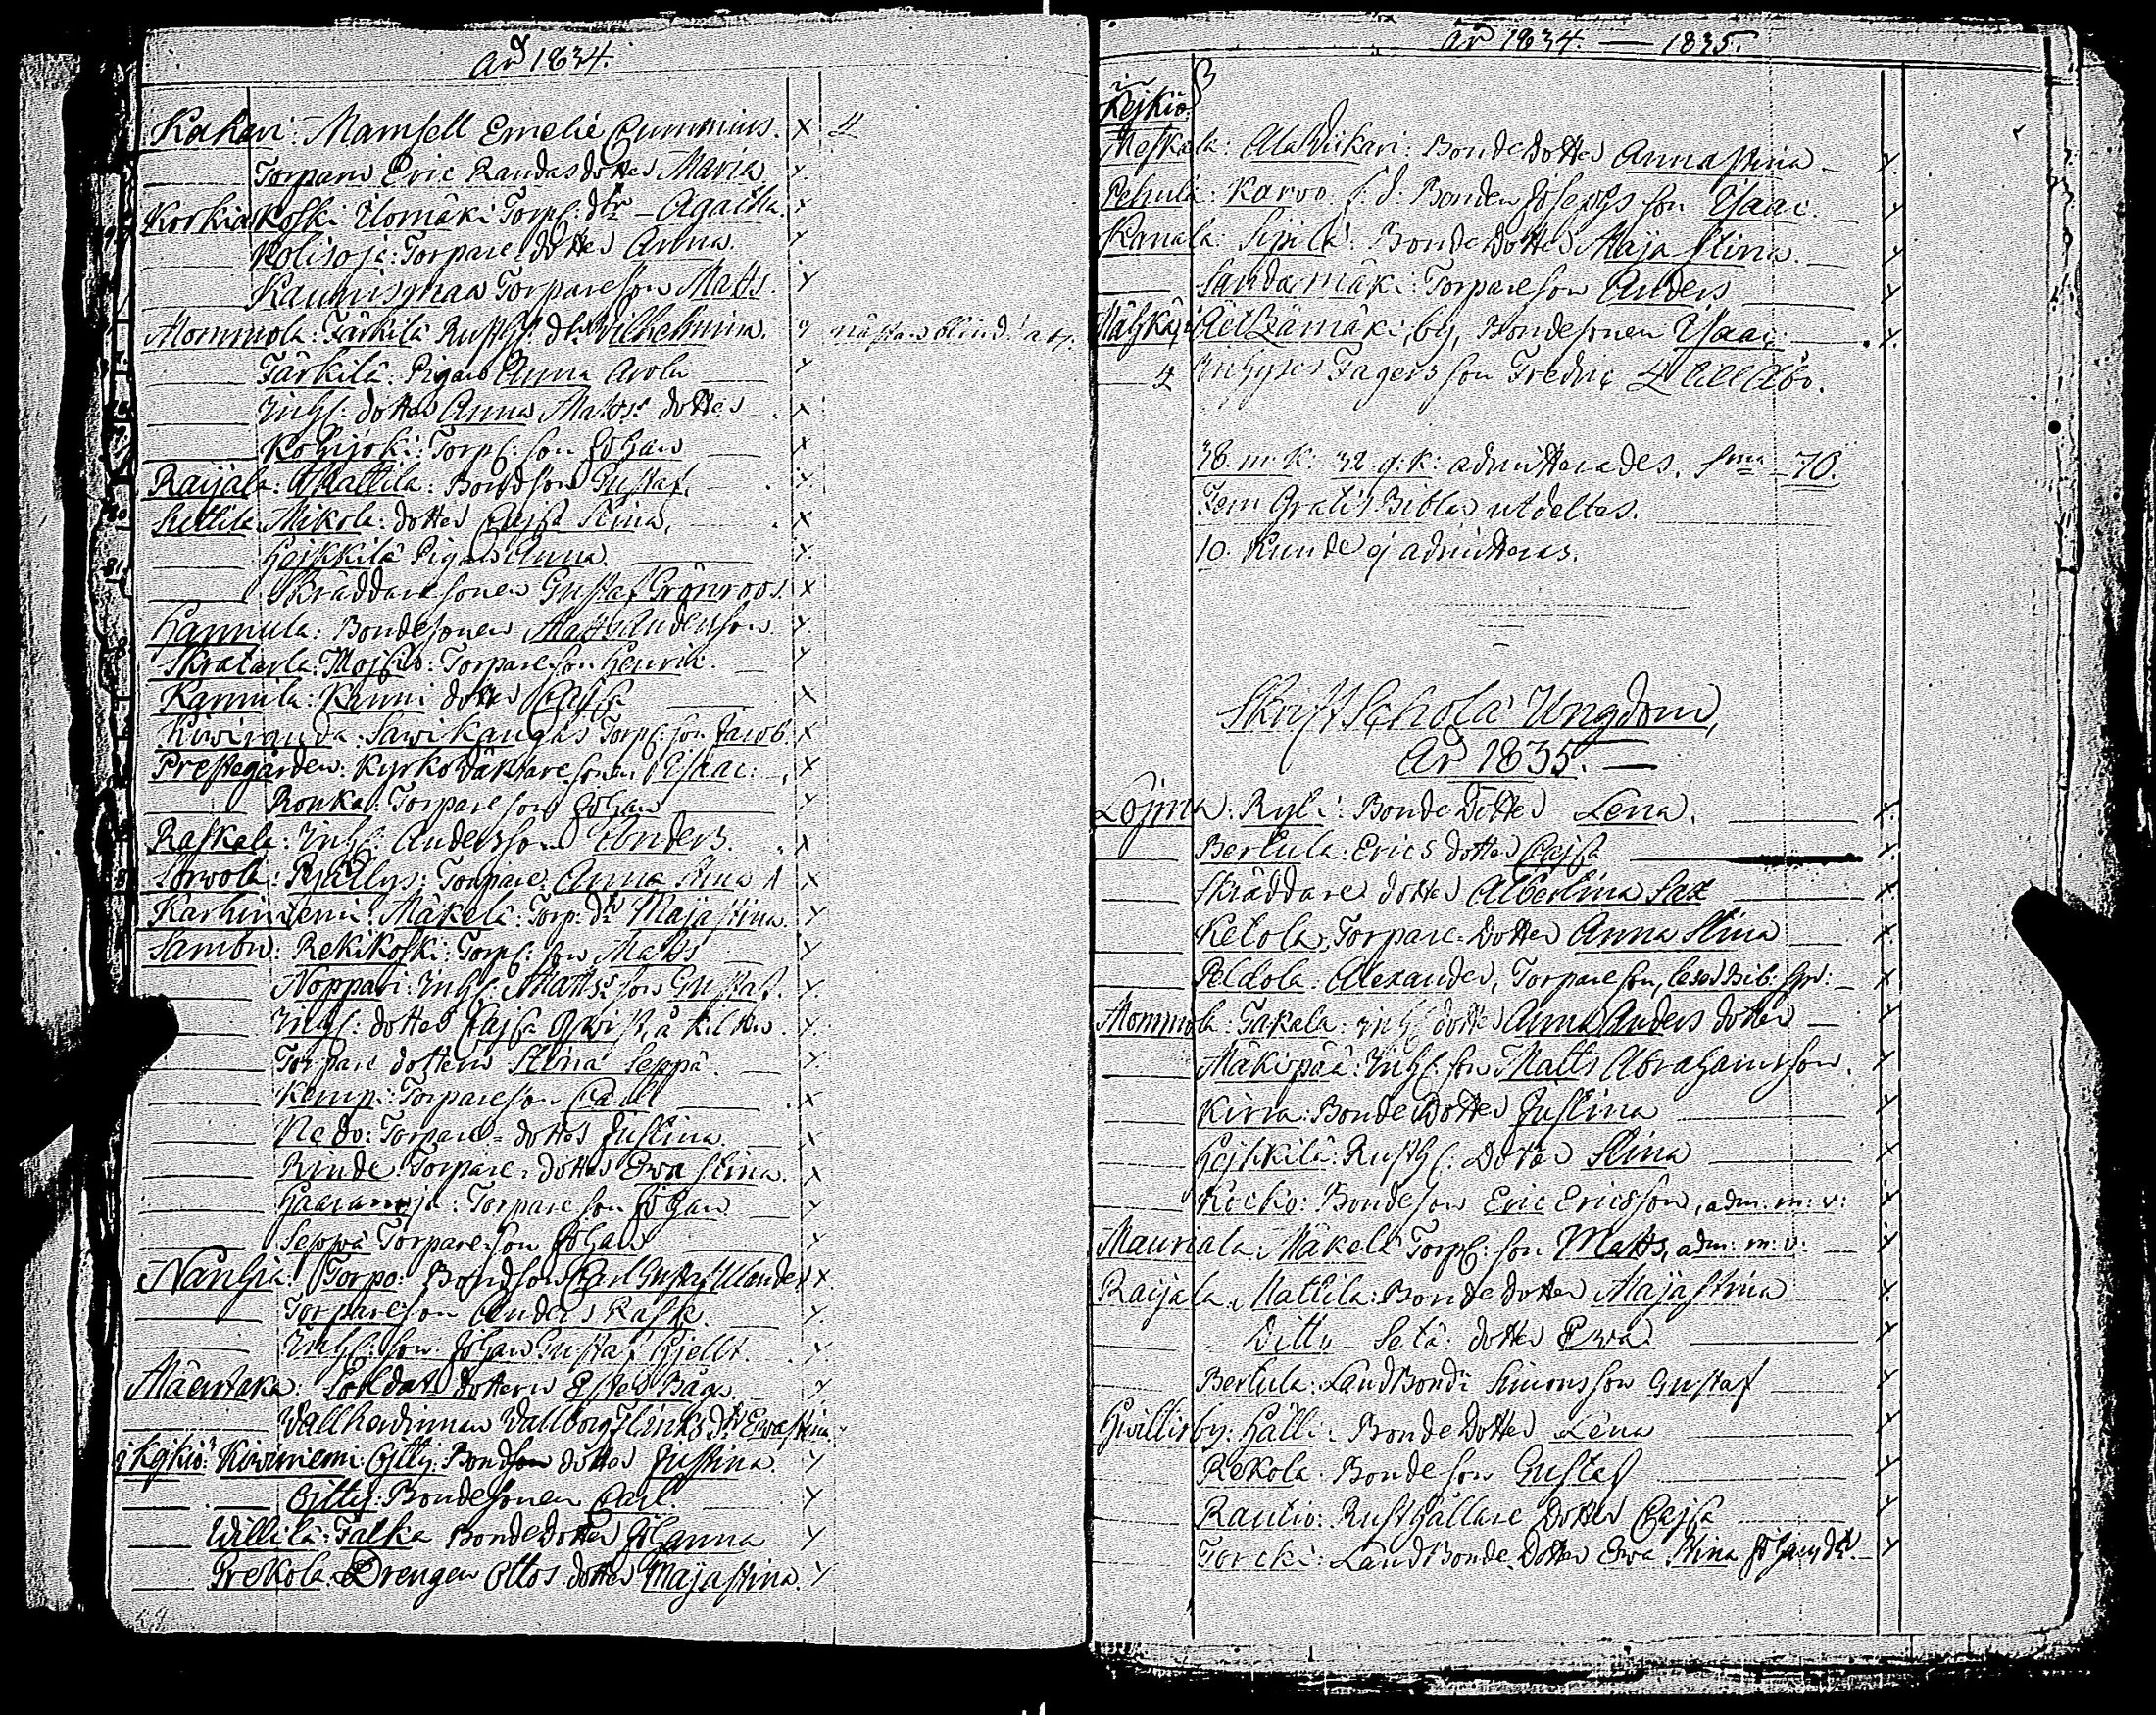 År 1834.
Kakari: Mamsell Emelie Cumenius. X
Torparn Eric Randas dotter Maria X
Korkiakoski Uomäki Torp: dtr Agatha. X
Kolisoja: Torpare dotter Anna. X
Kaunismaa Torpareson Matts. X
Mommola: Tärkilä Rusth: dtr Wilhelmina. nästan blind
Tärkilä: Pigan Anna X
Inhs: dotter Anna Matts dotter X
Kohijoki: Torp: son Johan X
Raijala: Mattila: Bondson Gustaf. X
Mikola: dotter Cajsa Stina. X
Heikkilä Pigan Anna. X
Skräddaresonen Gustaf Grönroos. X
Hannula: Bondesonen Matts Andersson. X
Torpareson Henric. X
Kannila: Kunni dotter Cajsa X
Kiwiranda: Sawikangas Torp: son Jacob. X
Prestegården: Kyrkowäktare sonen Isaac: X
Ronka: Torpare son Johan X
Raskala: Inhs: Andersson Anders. X
Torpare: Anna Stina X
Karhiniemi: Mäkelä: Torp: dtr Maja Stina. X
Sambu: Rekikoski: Torp: son Matts X
Noppari: Inhs: Matts son Gustaf. X
Inhs: dotter Cajsa X
Torpare dottern Stina Seppä. X
Kemp: Torpareson Carl X
Nedo: Torpare dotter Justina. X
Rinde Torpare dotter Ewa Stina. X
Haaranoja: Torpare son Johan X
Seppä Torpare son Johan X
Nanhia: Torpo: Bondson Carl Gustaf Ulander X
Torpareson Anders Rask. X
Inhs: son Johan Gustaf Hjellt. X
Soldats dottern Ester Båge X
Kiwiniemi: Ojtti: Bond dotter Justina. X
Ojtti: Bondesonen Carl. X
Willilä: Talka Bondedotter Johanna X
Prekola: Drengen Ottos dotter Majastina. X
År 1834. — 1835.
i Kejkiö
Meskala: AlaWickari: Bondedotter Annastina X
Pehula: Karvo. f. d. Bonden Josephs son Isaac. X
Kanala: Sipilä: Bondedotter Maja Stina. X
Sandamäki: Torpareson Anders X
by, Bondesonen Isaac: X
Fagers son Fredric till Åbo.
38. m: K: 32. q: K: admitterades. Sma 70.
Fem Gratis Biblar utdeltes.
10. Kunde ej admitteras.
SkriftSchola Ungdom,
År 1835.
Lojma: Ryli: Bonde Dotter Lena. X
Bertula: Erics dotter Cajsa X
Skräddare dotter Albertina Sax X
Ketola: Torpare Dotter Anna Stina X
Peldola: Alexander, Torpareson, X
Mommola: Takala: Inhs dotter Anna Anders dotter X
Mäkipää: Inhs: son Matts Abrahamsson. X
Kirra: Bonde Dotter Justina X
Hejkkilä: Rusth: Dotter Stina X
Kecko: Bondeson Eric Ericsson, adm: m: v: X
Mauriala: Mäkelä Torp: son Matts, adm: m: v: X
Raijala: Mattila: Bondedotter Majastina X
Ditto Setä: dotter Ewa. X
Bertula: Landbondi Simonsson Gustaf X
Hwillisby: Hälli: Bonde Dotter Lena X
Rekola: Bonde son Gustaf X
Rautio: Rusthållare Dotter Cajsa X
Torcki: LandBonde Dotter Ewa Stina X